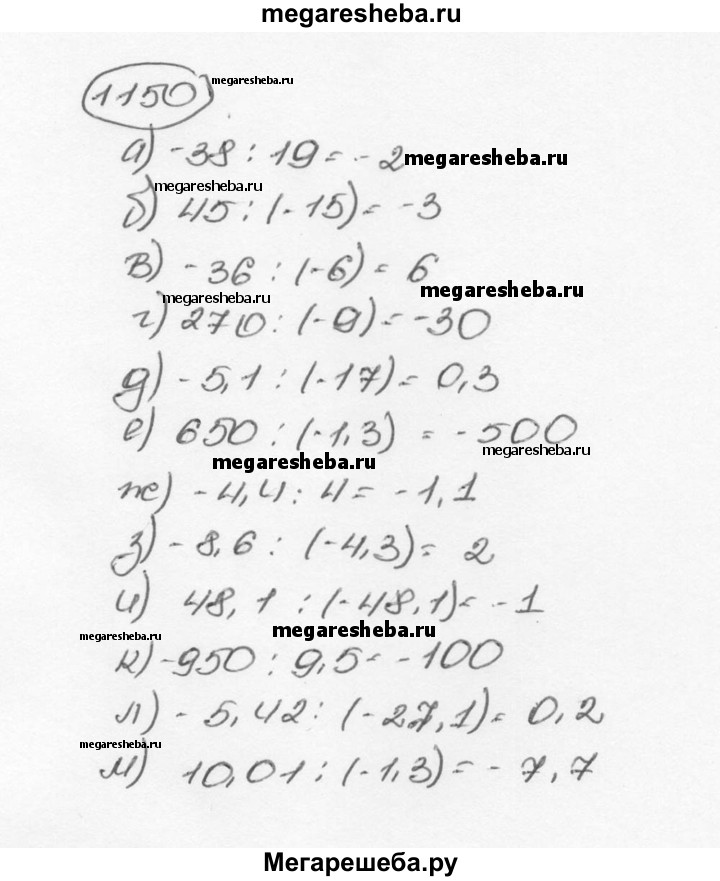 megaresheba.ru
1150 megaresheba.ru
а) -38 : 19 = -2 megaresheba.ru
megaresheba.ru
б) 45 : (-15) = -3
в) -36 : (-6) = 6
megaresheba.ru
megaresheba.ru
г) 270 : (-9) = -30
д) -5,1 : (-17) = 0,3
е) 650 : (-1,3) = -500
megaresheba.ru
megaresheba.ru
ж) -4,4 : 4 = -1,1
з) -8,6 : (-4,3) = 2
и) 48,1 : (-48,1) = -1
megaresheba.ru
megaresheba.ru
к) -950 : 9,5 = -100
л) -5,42 : (-27,1) = 0,2
megaresheba.ru
м) 10,01 : (-1,3) = -7,7
Мегарешеба.ру